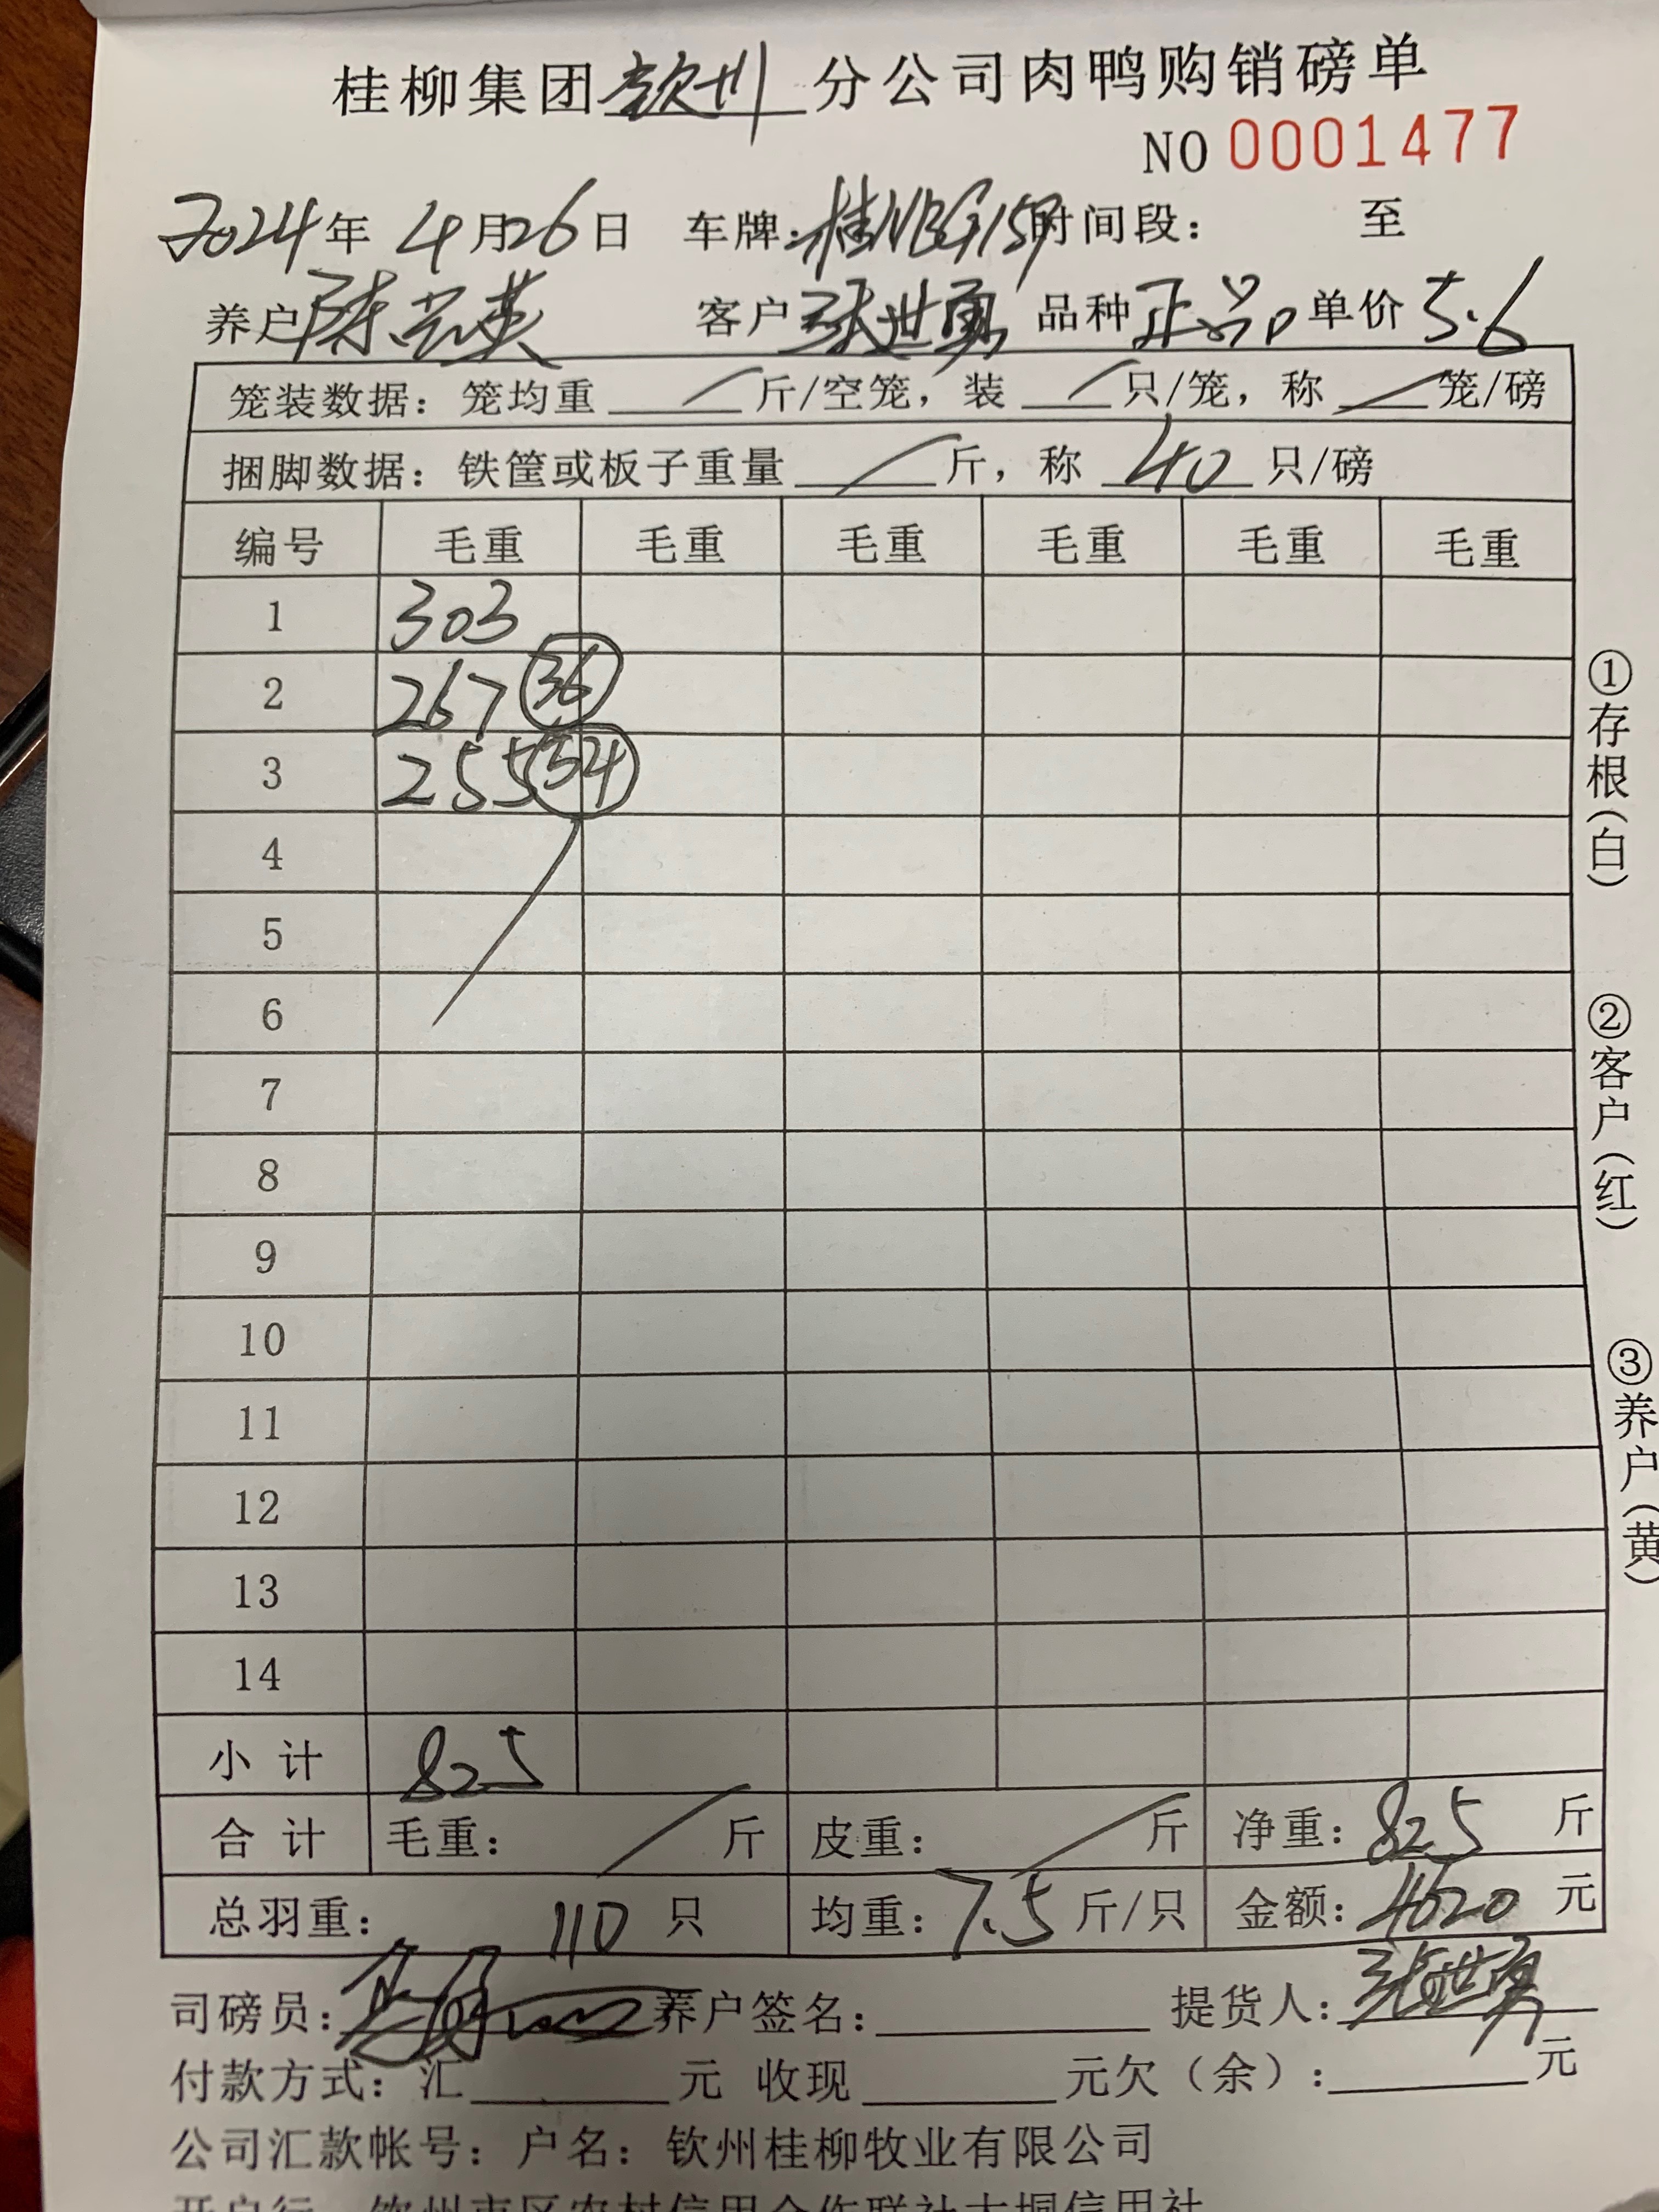 桂柳集团钦州分公司肉鸭购销磅单
NO 0001477
2024年 4月26日 车牌:桂NBG159 时间段: 至
养户 陈芸英 客户 张世勇 品种 正品 单价 5.6
笼装数据: 笼均重 / 斤/空笼, 装 / 只/笼, 称 / 笼/磅
捆脚数据: 铁筐或板子重量 / 斤, 称 40 只/磅
编号 毛重 毛重 毛重 毛重 毛重 毛重
1 303
2 267 36
3 255 34
4
5
6
7
8
9
10
11
12
13
14
小计 825
合计 毛重: / 斤 皮重: / 斤 净重: 825 斤
总羽重: 110 只 均重: 7.5 斤/只 金额: 4620 元
司磅员: 养户签名: 提货人: 张世勇
付款方式: 汇 元 收现 元欠(余): 元
公司汇款帐号: 户名: 钦州桂柳牧业有限公司
开户行 钦州市区农村信用合作联社大垌信用社
①存根(白)
②客户(红)
③养户(黄)